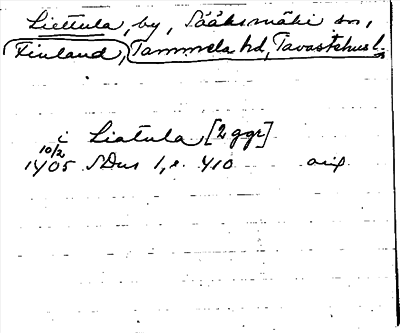 Liettula, by, Sääksmäki sn,
Finland, Tammela hd, Tavastehus l.
i Liatula [2 ggr]
10/2
1405 SDns 1, s. 410 orig